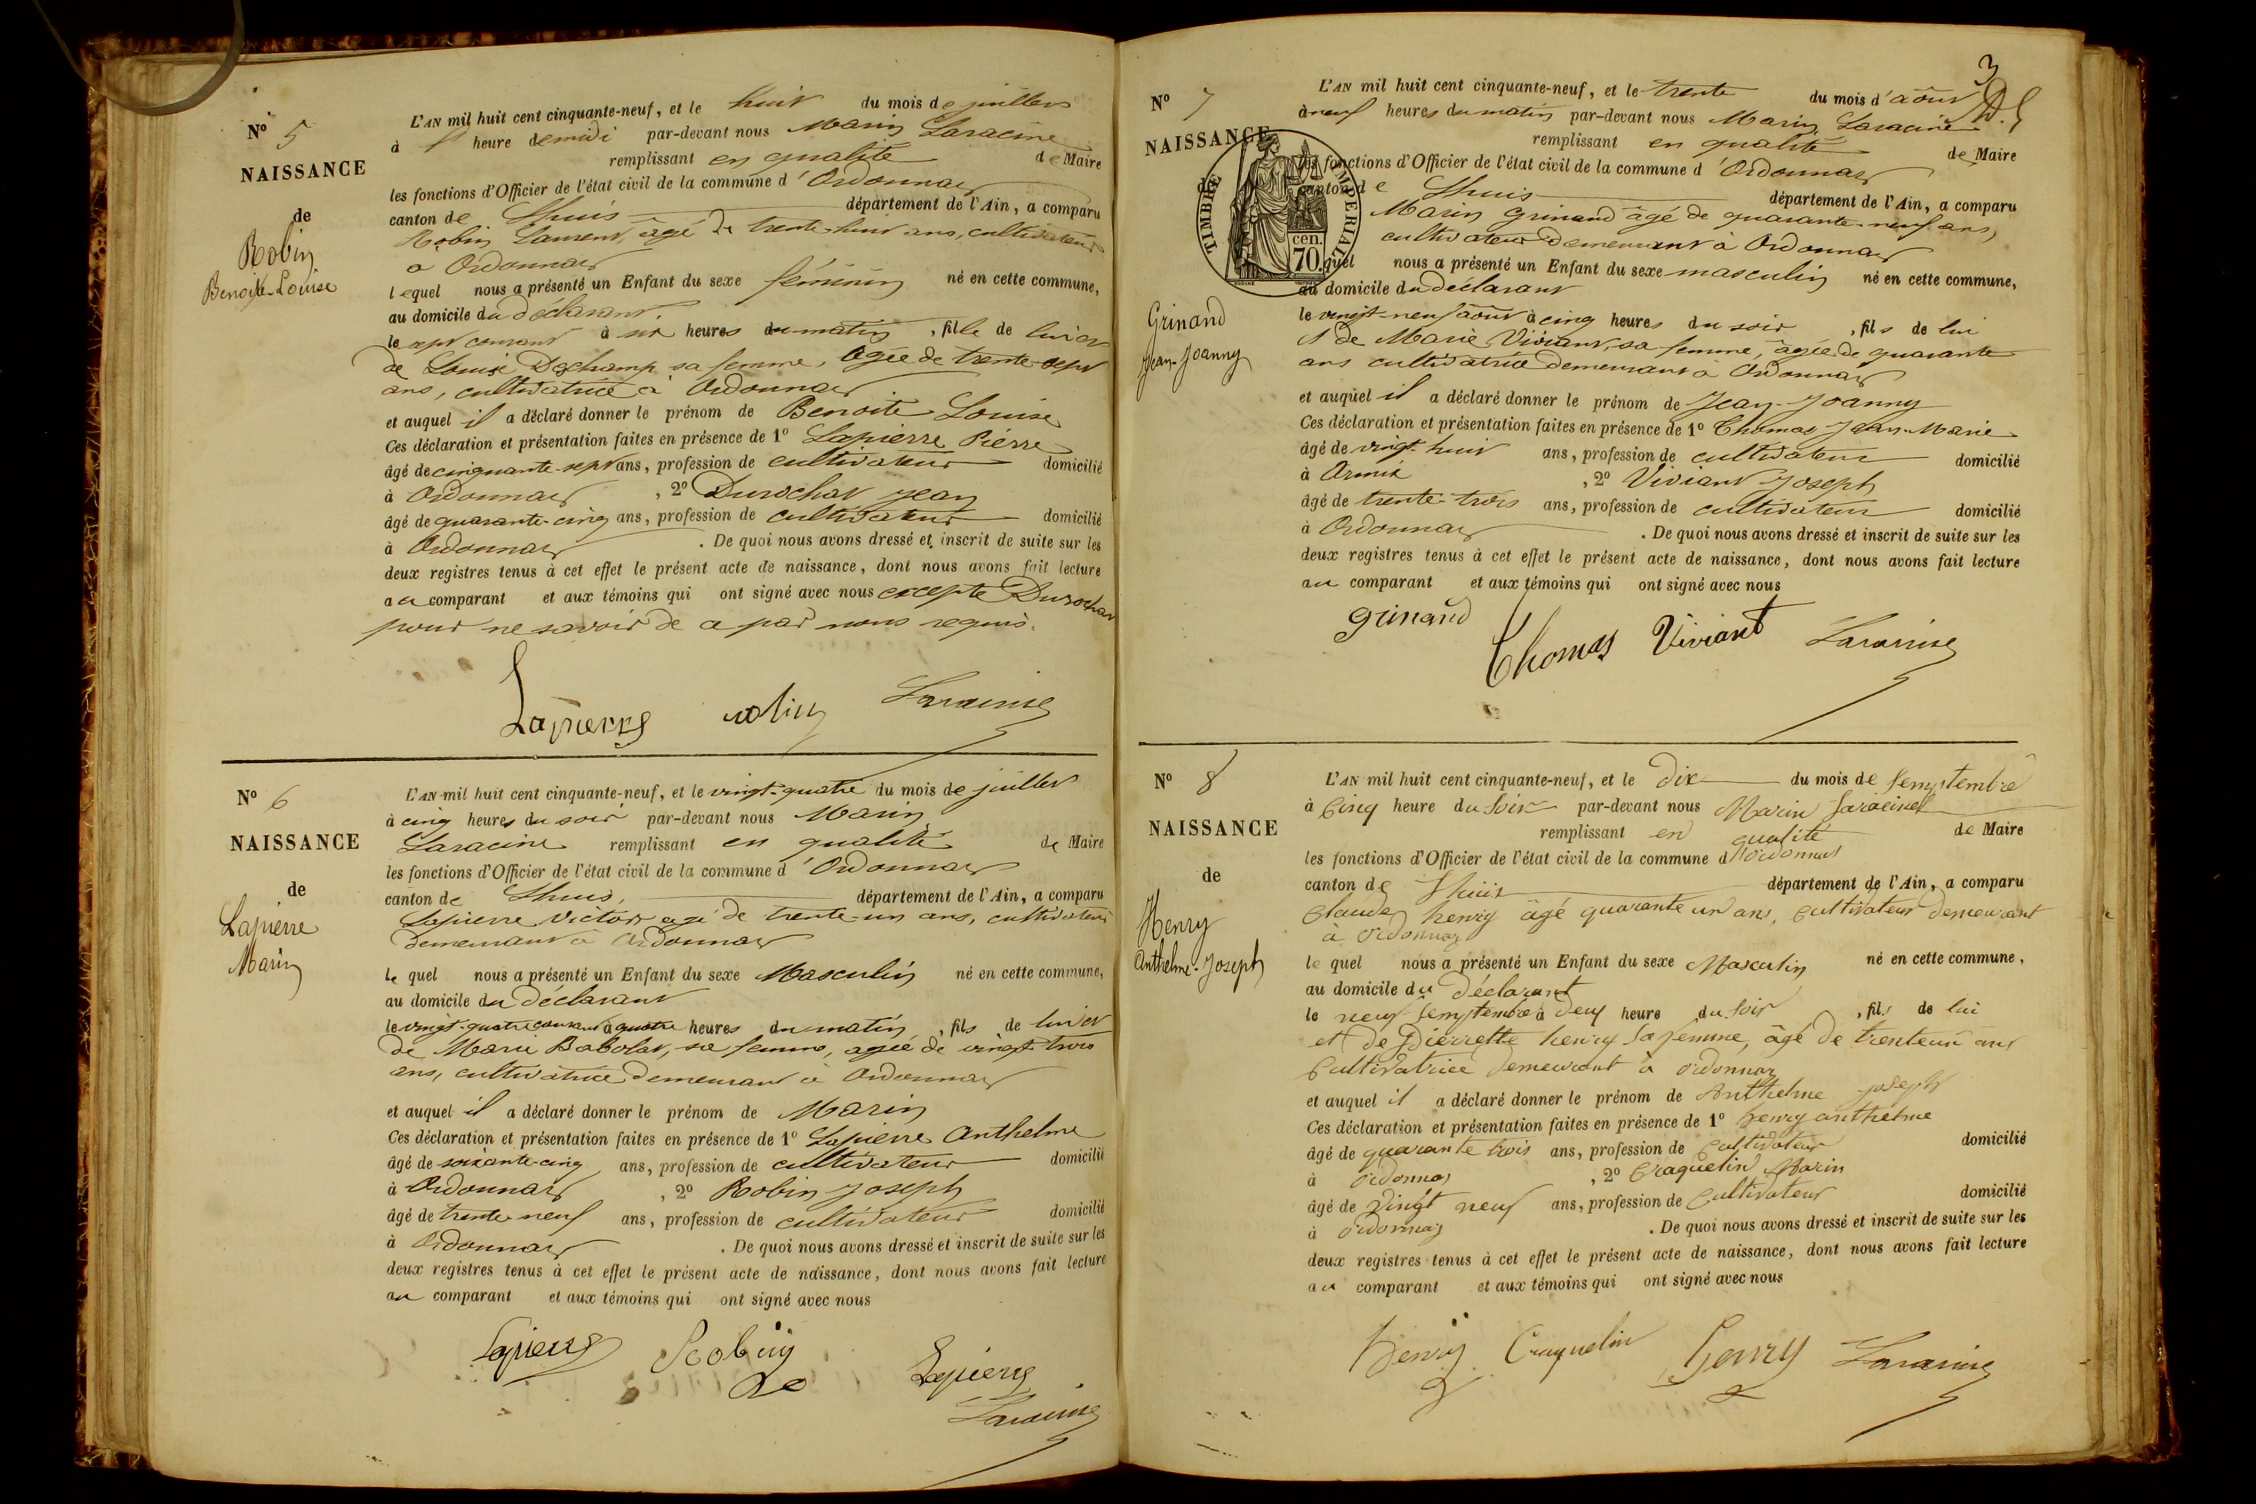 N° 5
NAISSANCE
de
Robin
Benoite Louise
L'AN mil huit cent cinquante-neuf, et le huit du mois de juillet
à heure de midi par-devant nous Marin Laracine
remplissant en qualité de Maire
les fonctions d'Officier de l'état civil de la commune d'Ordonnaz
canton de Lhuis département de l'Ain, a comparu
Robin Laurent, âgé de trente-huit ans, cultivateur
à Ordonnaz
lequel nous a présenté un Enfant du sexe féminin né en cette commune,
au domicile du déclarant
le sept courant à six heures du matin, fille de lui et
de Louise Dechamp sa femme, âgée de trente-sept
ans, cultivatrice à Ordonnaz
et auquel il a déclaré donner le prénom de Benoite Louise
Ces déclaration et présentation faites en présence de 1° Lapierre Pierre
âgé de cinquante-sept ans, profession de cultivateur domicilié
à Ordonnaz, 2° Durochat Jean
âgé de quarante-cinq ans, profession de cultivateur domicilié
à Ordonnaz. De quoi nous avons dressé et inscrit de suite sur les
deux registres tenus à cet effet le présent acte de naissance, dont nous avons fait lecture
au comparant et aux témoins qui ont signé avec nous excepté Durochat
pour ne savoir de ce par nous requis.
Lapierre robin Laracine
N° 6
NAISSANCE
de
Lapierre
Marin
L'AN mil huit cent cinquante-neuf, et le vingt-quatre du mois de juillet
à cinq heures du soir par-devant nous Marin
Laracine remplissant en qualité de Maire
les fonctions d'Officier de l'état civil de la commune d'Ordonnaz
canton de Lhuis, département de l'Ain, a comparu
Lapierre Victor âgé de trente-un ans, cultivateur
demeurant à Ordonnaz
le quel nous a présenté un Enfant du sexe Masculin né en cette commune,
au domicile du déclarant
le vingt-quatre courant à quatre heures du matin, fils de lui et
de Marie Babolat, sa femme, agée de vingt-trois
ans, cultivatrice demeurant à Ordonnaz
et auquel il a déclaré donner le prénom de Marin
Ces déclaration et présentation faites en présence de 1° Lapierre Anthelme
âgé de soixante-cinq ans, profession de cultivateur domicilié
à Ordonnaz, 2° Robin Joseph
âgé de trente-neuf ans, profession de cultivateur domicilié
à Ordonnaz. De quoi nous avons dressé et inscrit de suite sur les
deux registres tenus à cet effet le présent acte de naissance, dont nous avons fait lecture
au comparant et aux témoins qui ont signé avec nous
Lapierre Robin Lapierre
Laracine
3
N° 7
NAISSANCE
de
TIMBRE IMPERIAL
70 cen.
Grinand
Jean-Joanny
L'AN mil huit cent cinquante-neuf, et le trente du mois d'août
à neuf heures du matin par-devant nous Marin Laracine
remplissant en qualité de Maire
les fonctions d'Officier de l'état civil de la commune d'Ordonnaz
canton de Lhuis département de l'Ain, a comparu
Marin Grinand âgé de quarante-neuf ans,
cultivateur demeurant à Ordonnaz
lequel nous a présenté un Enfant du sexe masculin né en cette commune,
au domicile du déclarant
le vingt-neuf août à cinq heures du soir, fils de lui
et de Marie Viviant, sa femme, âgée de quarante
ans cultivatrice demeurant à Ordonnaz
et auquel il a déclaré donner le prénom de Jean-Joanny
Ces déclaration et présentation faites en présence de 1° Thomas Jean-Marie
âgé de vingt-huit ans, profession de cultivateur domicilié
à Armix, 2° Viviant Joseph
âgé de trente-trois ans, profession de cultivateur domicilié
à Ordonnaz. De quoi nous avons dressé et inscrit de suite sur les
deux registres tenus à cet effet le présent acte de naissance, dont nous avons fait lecture
au comparant et aux témoins qui ont signé avec nous
Grinand Thomas Viviant Laracine
N° 8
NAISSANCE
de
Henry
Anthelme-Joseph
L'AN mil huit cent cinquante-neuf, et le dix du mois de semptembre
à Cinq heure du soir par-devant nous Marin Laracine
remplissant en qualité de Maire
les fonctions d'Officier de l'état civil de la commune d'ordonnas
canton de Lhuis département de l'Ain, a comparu
Claude henry âgé quarante un ans, Cultivateur demeurant
à ordonnaz
le quel nous a présenté un Enfant du sexe Masculin né en cette commune,
au domicile du Déclarant
le neuf semptembre à deux heure du soir, fils de lui
et de Pierrette henry sa femme, âgé de trenteun ans
Cultivatrice demeurant à ordonnaz
et auquel il a déclaré donner le prénom de Anthelme joseph
Ces déclaration et présentation faites en présence de 1° henry anthelme
âgé de quarante trois ans, profession de Cultivateur domicilié
à ordonnas, 2° Craquelin Marin
âgé de vingt neuf ans, profession de Cultivateur domicilié
à ordonnaz. De quoi nous avons dressé et inscrit de suite sur les
deux registres tenus à cet effet le présent acte de naissance, dont nous avons fait lecture
au comparant et aux témoins qui ont signé avec nous
henry Craquelin henry Laracine